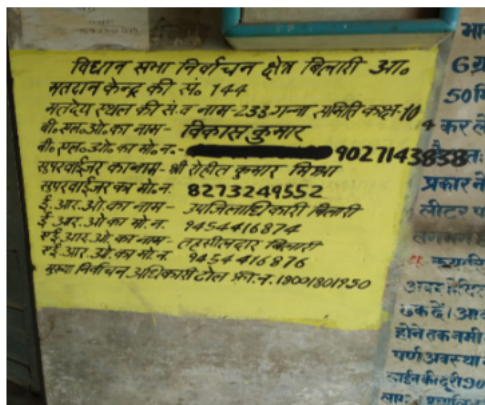 विधान सभा निर्वाचन क्षेत्र बिलारी आ०
मतदान केन्द्र की सं० 144
मतदेय स्थल की सं. व नाम-238 गन्ना समिति कक्ष-10
बी.एल.ओ.का नाम- विकास कुमार
बी.एल.ओ.का मो.न.- 9027143838
सुपरवाईजर का नाम- श्री रोहीत कुमार मिश्रा
सुपरवाईजर का मो.न. 8273249552
ई.आर.ओ.का नाम- उपजिलाधिकारी बिलारी
ई.आर.ओ.का मो.न. 9454416874
एई.आर.ओ.का नाम- तहसीलदार बिलारी
एई.आर.ओ.का मो.न. 9454416876
मुख्य निर्वाचन अधिकारी टोल फ्री.न. 18001801950
6 ग्र
कर ले
प्रकार ने
लीटर प
ढक दें। आ
होने तक नमी